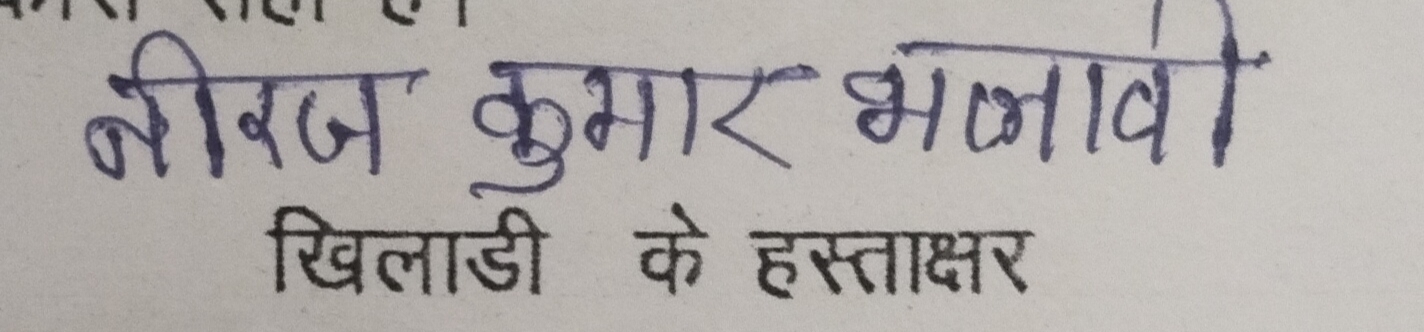 नीरज कुमार भलावी
खिलाडी के हस्ताक्षर